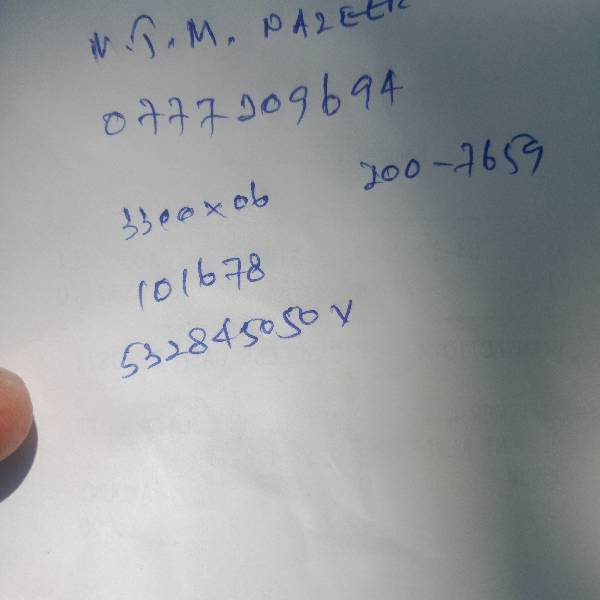 N.J.M. NAZEER
0777209694
200-7659
3300x06
101678
532845050V